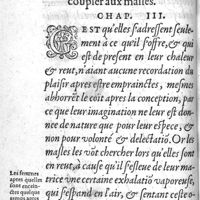 coupler aux masles.
CHAP. III.
CEST qu'elles s'adressent seule-
ment à ce qu'il s'offre, & qui
est de present en leur chaleur
& reut, n'aiant aucune recordation du
plaisir apres estre emprainctes, mesmes
abhorrét le coit apres la conception, par
ce que leur imagination ne leur est don-
née de nature que pour leur espece, &
non pour volonté & delectatiō. Or les
masles les vōt chercher lors qu'elles sont
en reut, à cause qu'il s'esleue de leur ma-
trice vne certaine exhalatiō vaporeuse,
qui s'espand en l'air, & sentant ceste o-
Les femmes
apres quelles
sont encein-
tes quelque
temps apres